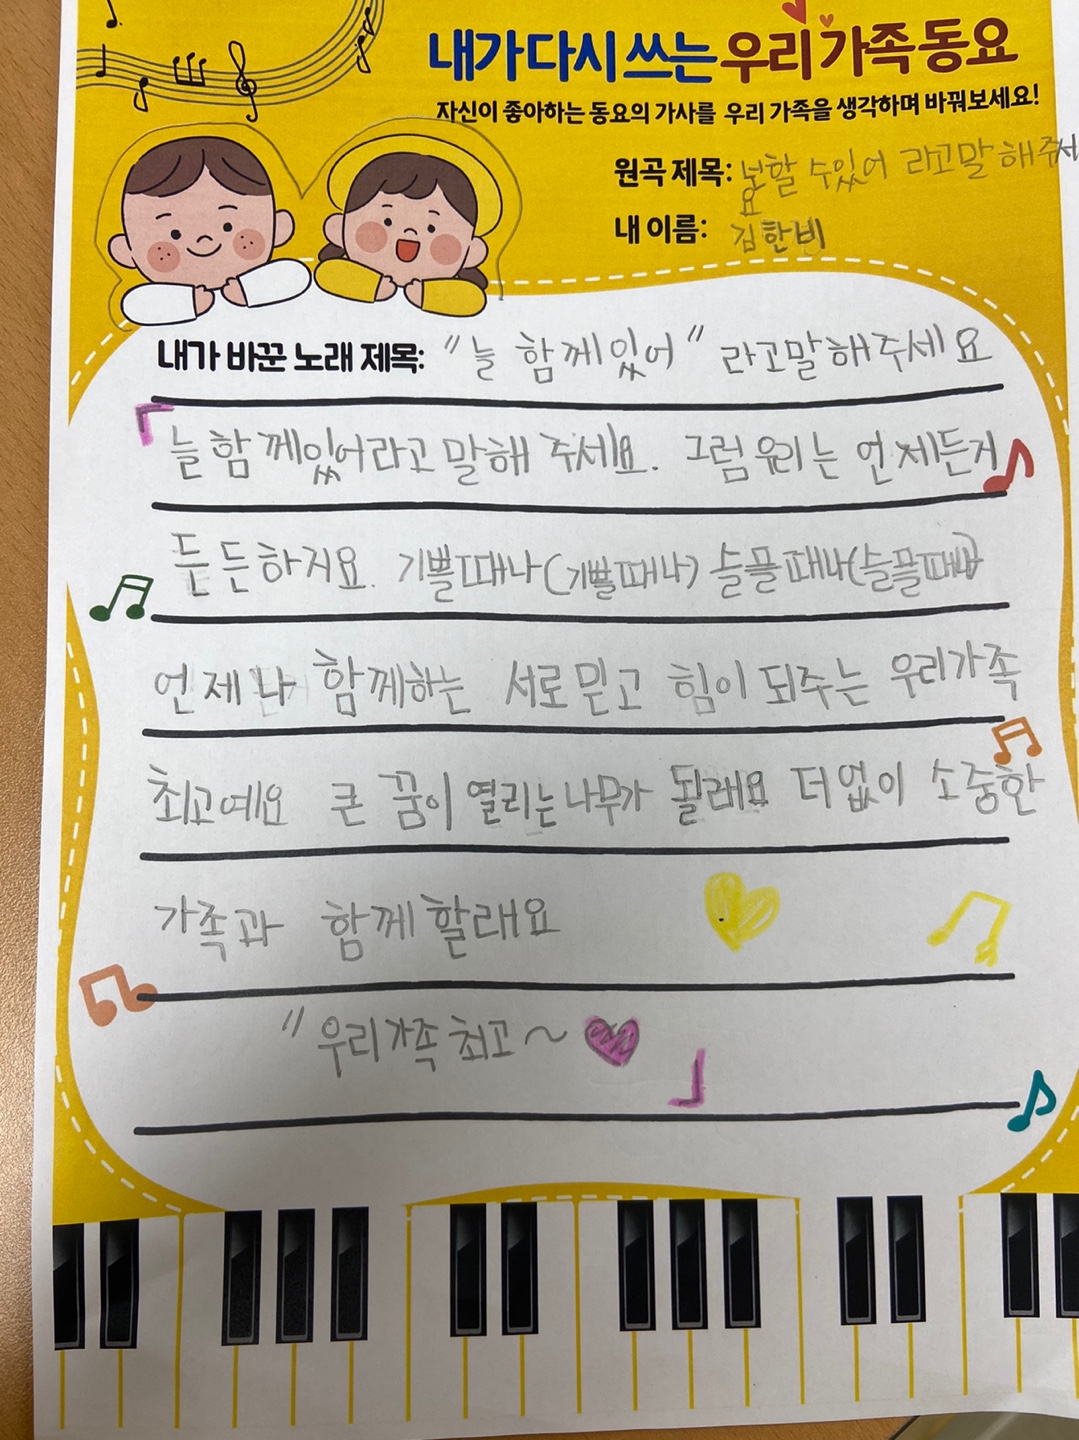 내가 다시 쓰는 우리 가족 동요
자신이 좋아하는 동요의 가사를 우리 가족을 생각하며 바꿔보세요!
원곡 제목: 할 수있어 라고말해주세
요
내 이름: 김한비
내가 바꾼 노래 제목: "늘 함께있어" 라고말해주세요
「늘함께있어라고 말해 주세요. 그럼 우리는 언제든지
든든하지요. 기쁠때나(기쁠때나) 슬플때나(슬플때나)
언제나 함께하는 서로믿고 힘이 되주는 우리가족
최고예요 큰 꿈이 열리는 나무가 될래요 더없이 소중한
가족과 함께할래요
"우리가족 최고~♥」